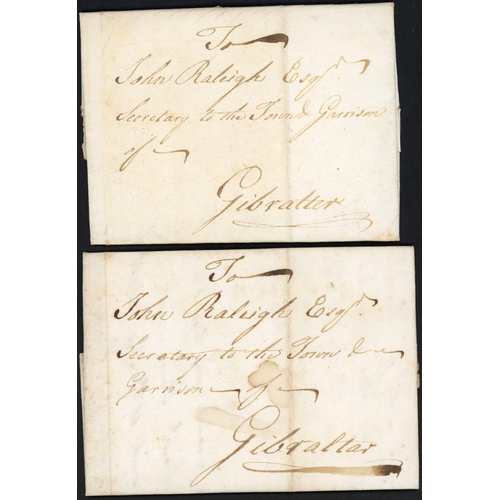 To
John Raleigh Esqr.
Secretary to the Town & Garrison
of
Gibralter
To
John Raleigh Esqr.
Secretary to the Town &
Garrison of
Gibraltar